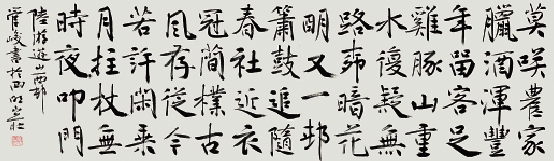 莫咲農家
臘酒渾豐
年留客足
雞豚山重
水復疑無
路柳暗花
明又一邨
簫鼓追隨
春社近衣
冠簡樸古
風存從今
若許閑乘
月拄杖無
時夜叩門
陸游遊山西邨
管峻書於